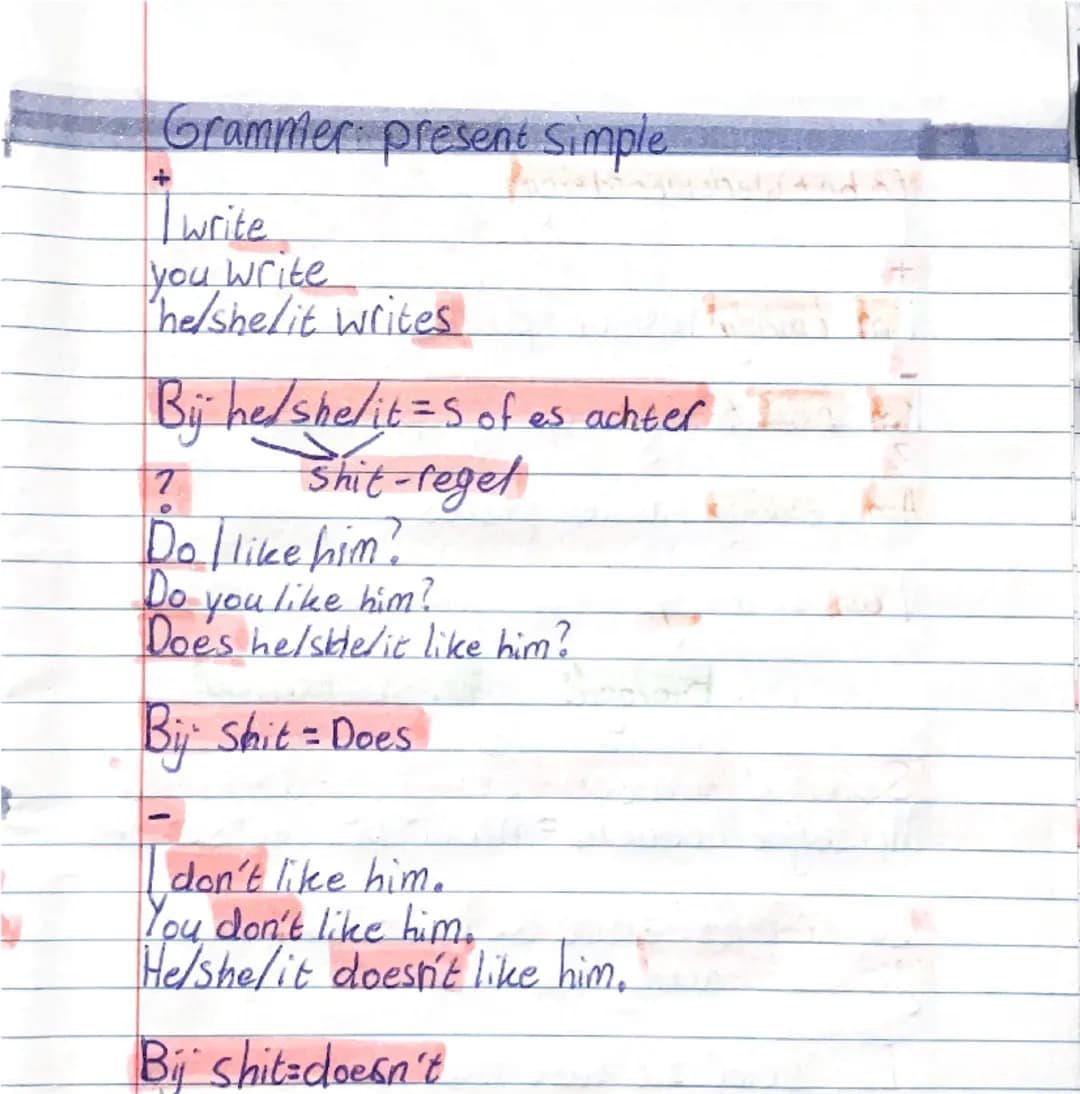 Grammer: present simple
+
I write
you write
he/she/it writes
Bij he/she/it = s of es achter
shit-regel
?
Do I like him?
Do you like him?
Does he/she/it like him?
Bij shit = Does
-
I don't like him.
You don't like him.
He/she/it doesn't like him.
Bij shit=doesn't